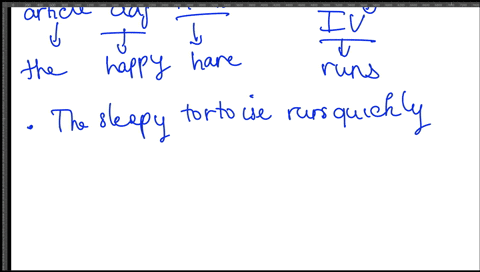 article adj
IV
the happy hare runs
. The sleepy tortoise runs quickly